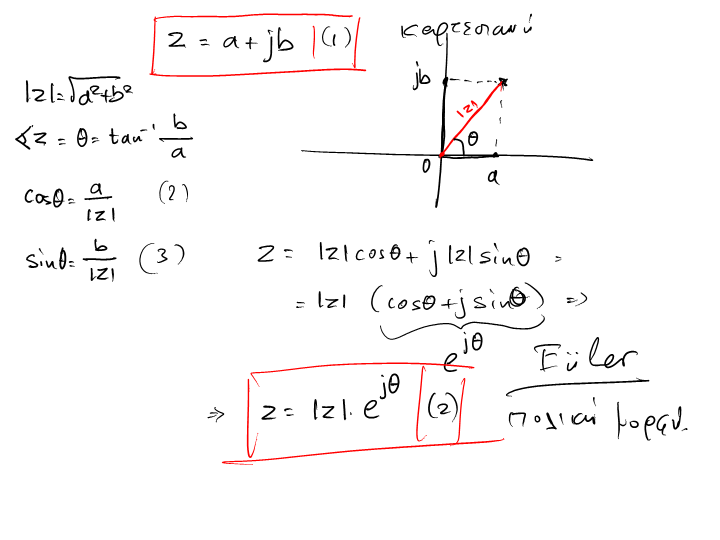 z = a + jb (1)
καρτεσιανή
|z| = √a²+b²
∢z = θ = tan⁻¹ b/a
cosθ = a/|z| (2)
sinθ = b/|z| (3)
jb
|z|
θ
0
a
z = |z|cosθ + j|z|sinθ =
= |z| (cosθ + j sinθ) =>
e^jθ
Eüler
=> z = |z|. e^jθ (2)
πολική μορφή.